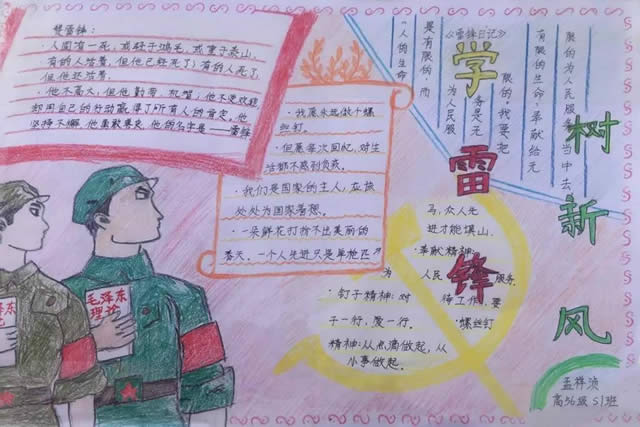 赞雷锋:
·人固有一死,或轻于鸿毛,或重于泰山。
有的人活着,但他已经死了;有的人死了
但他还活着。
·他不高大,但他勤劳、热赞;他不受欢迎
却用自己的行动赢得了所有人的肯定。他
坚持不懈,他勇敢
他的名字是——雷锋
·我愿永远做个螺
丝钉。
·但愿每次回忆,对生
活都不感到负疚。
·我们是国家的主人,应该
处处为国家着想。
·一朵鲜花打扮不出美丽的
春天,一个人先进只是单枪匹
马,众人先
进才能填山。
·奉献精神:
为人民服务。
·钉子精神:对待工作,要
干一行,爱一行。
·螺丝钉
精神:从点滴做起,从
小事做起。
《雷锋日记》
“人的生命
是有限的,而
为人民服
务是无
限的。我要把
有限的生命,奉献给无
限的为人民服务当中去
学
雷
锋
树
新
风
毛泽东
理论
毛泽东
孟祥浈
高56级 S1班